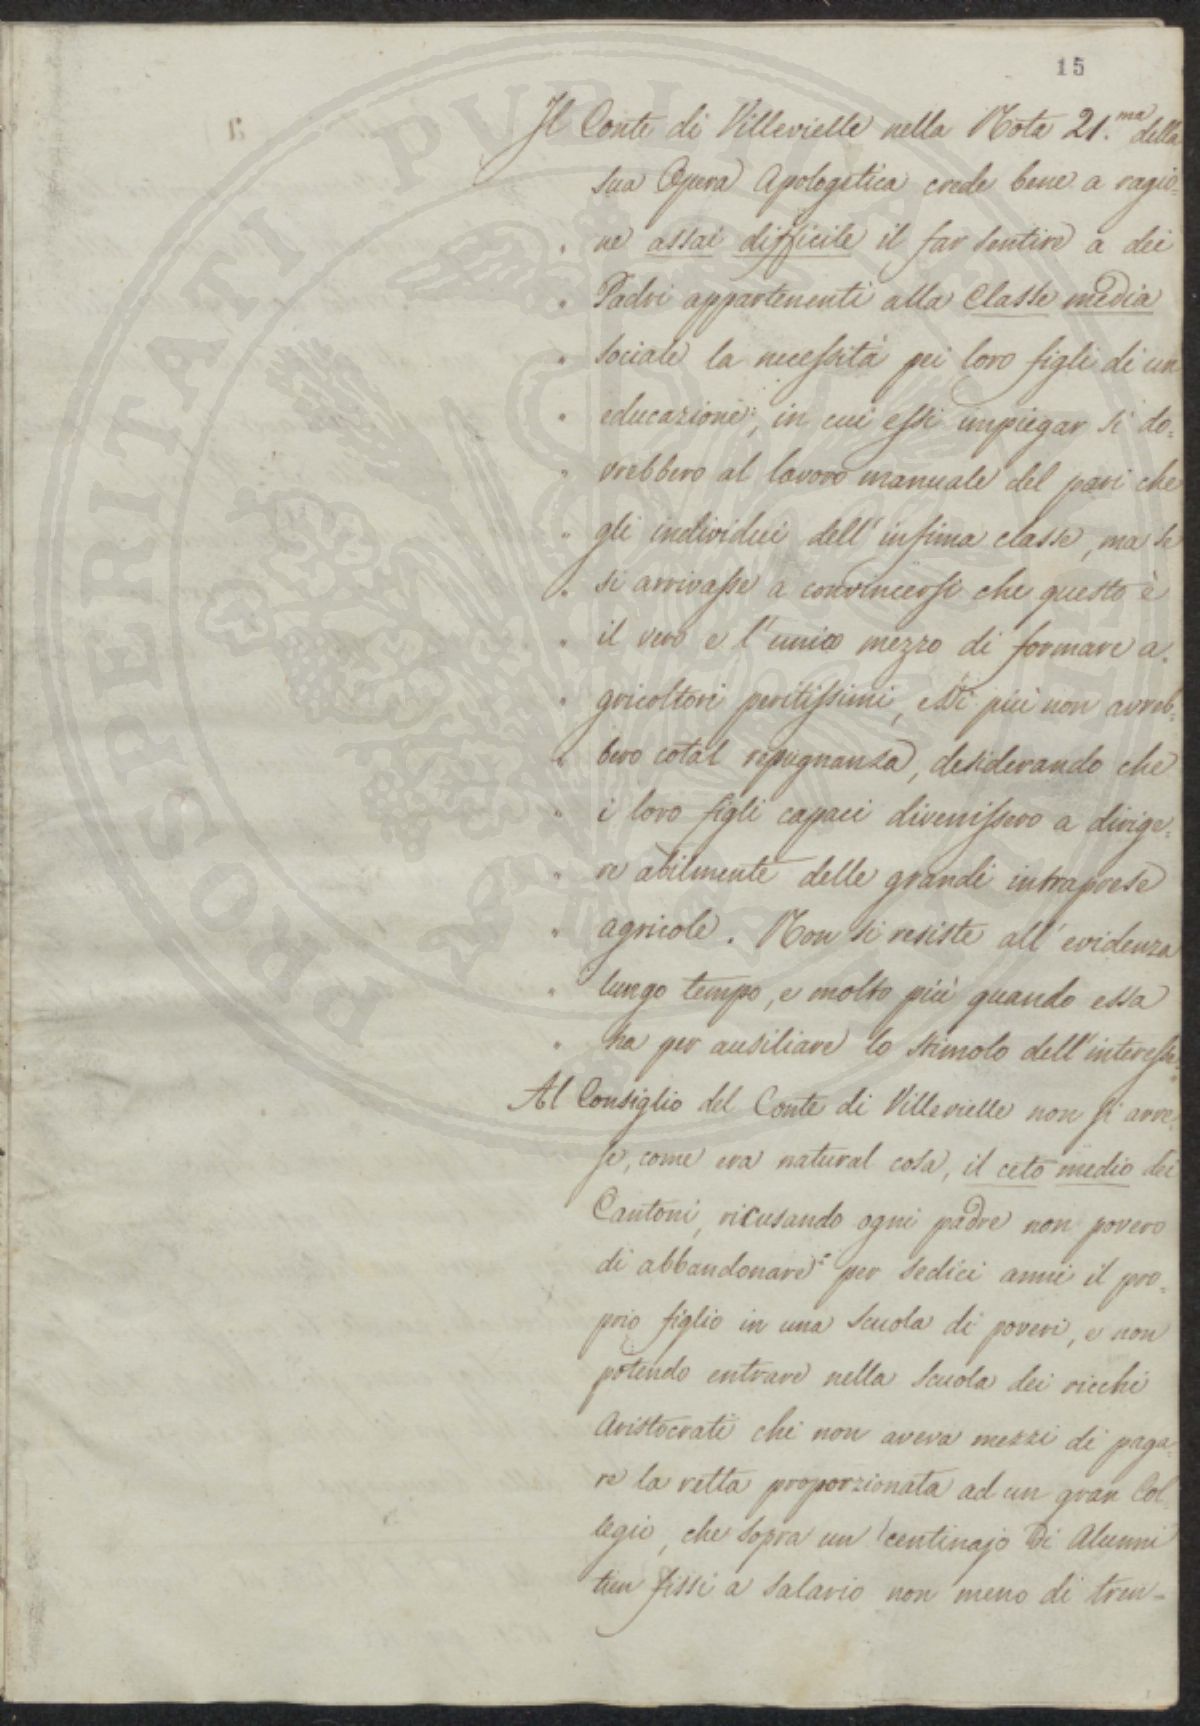 15
Il Conte di Villevielle nella Nota 21.ma della
sua Opera Apologetica crede bene a ragio=
" ne assai difficile il far sentire a dei
" Padri appartenenti alla Classe media
" sociale la necessità pei loro figli di un
" educazione, in cui essi impiegar si do=
" vrebbero al lavoro manuale del pari che
" gli individui dell'infima classe, ma se
" si arrivasse a convincersi che questo è
" il vero e l'unico mezzo di formare a=
" gricoltori peritissimi, essi più non avreb=
" bero cotal repugnanza, desiderando che
" i loro figli capaci divenissero a dirige=
" re abilmente delle grandi intraprese
" agricole. Non si resiste all'evidenza
" lungo tempo, e molto più quando essa
" ha per ausiliare lo stimolo dell'interesse."
Al Consiglio del Conte di Villevielle non si arre=
se, come era natural cosa, il ceto medio dei
Cantoni, ricusando ogni padre non povero
di abbandonare per sedici anni il pro=
prio figlio in una scuola di poveri, e non
potendo entrare nella scuola dei ricchi
Aristocrati chi non aveva mezzi di paga=
re la retta proporzionata ad un gran Col=
legio, che sopra un centinajo di Alunni
tien fissi a salario non meno di tren=
PROSPERITATI PUBLICAE